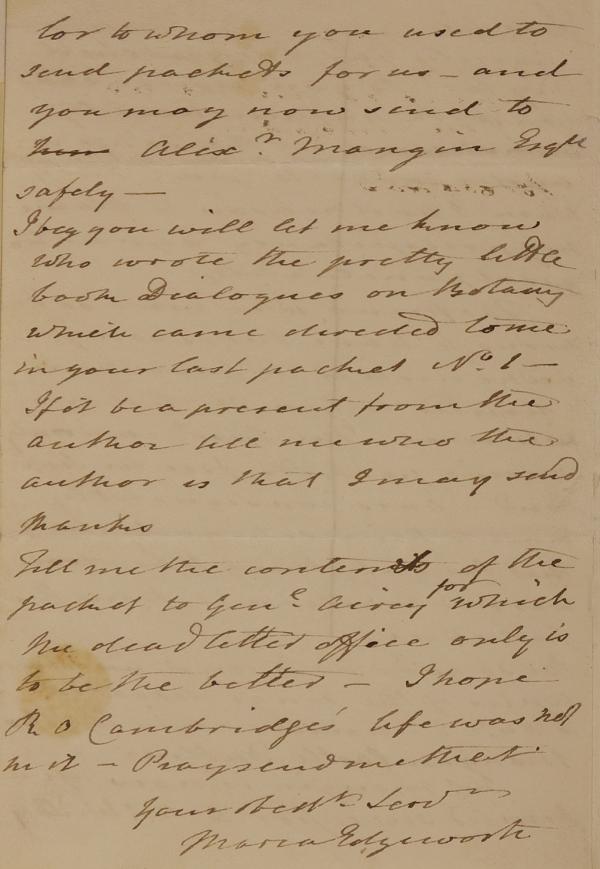 lor to whom you used to
send packets for us – and
you may now send to
him Alex.r Mangin Esqre
safely —
I beg you will let me know
who wrote the pretty little
book Dialogues on Botany
which came directed to me
in your last packet No. 1 —
If it be a present from the
author tell me who the
author is that I may send
thanks
Tell me the contents of the
packet to Genl. Airey for which
the dead letter office only is
to be the better – I hope
R O Cambridge's life was not
in it – Pray send me that
Your obedt. Servt
Maria Edgeworth